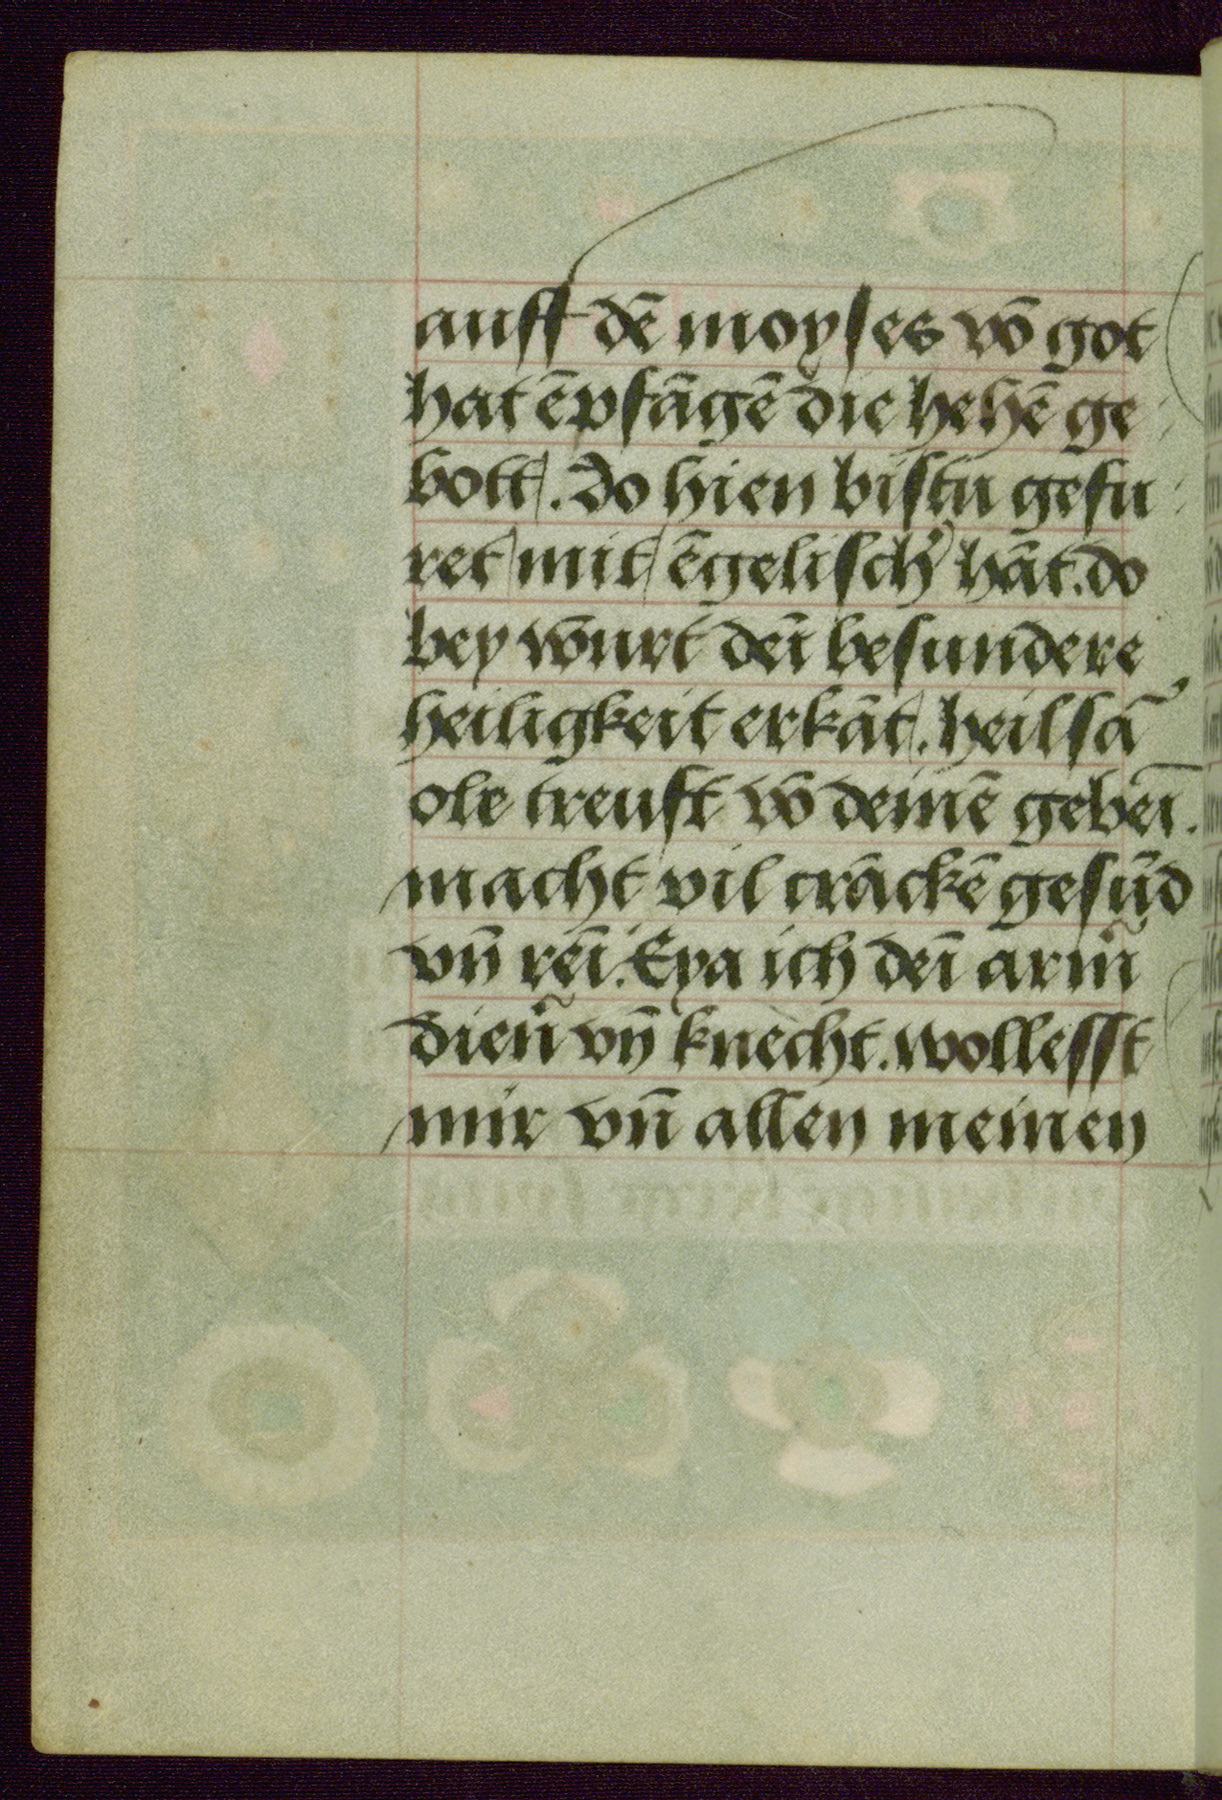 auff dē moyses vō got
hat ēpfāgē die hehē ge
bott. do hien bistu gefu
ret mit ēgelisch᷎ hāt. do
bey wurt dei̅ besundere
heiligkeit erkāt. heilsā
ole treuft vō deinē gebei̅.
macht vil crāckē gesūd
vn̄ rei̅. Eya ich dei̅ arm̄
dien̄ vn̄ knecht. wollesst
mir vn̄ allen meinen